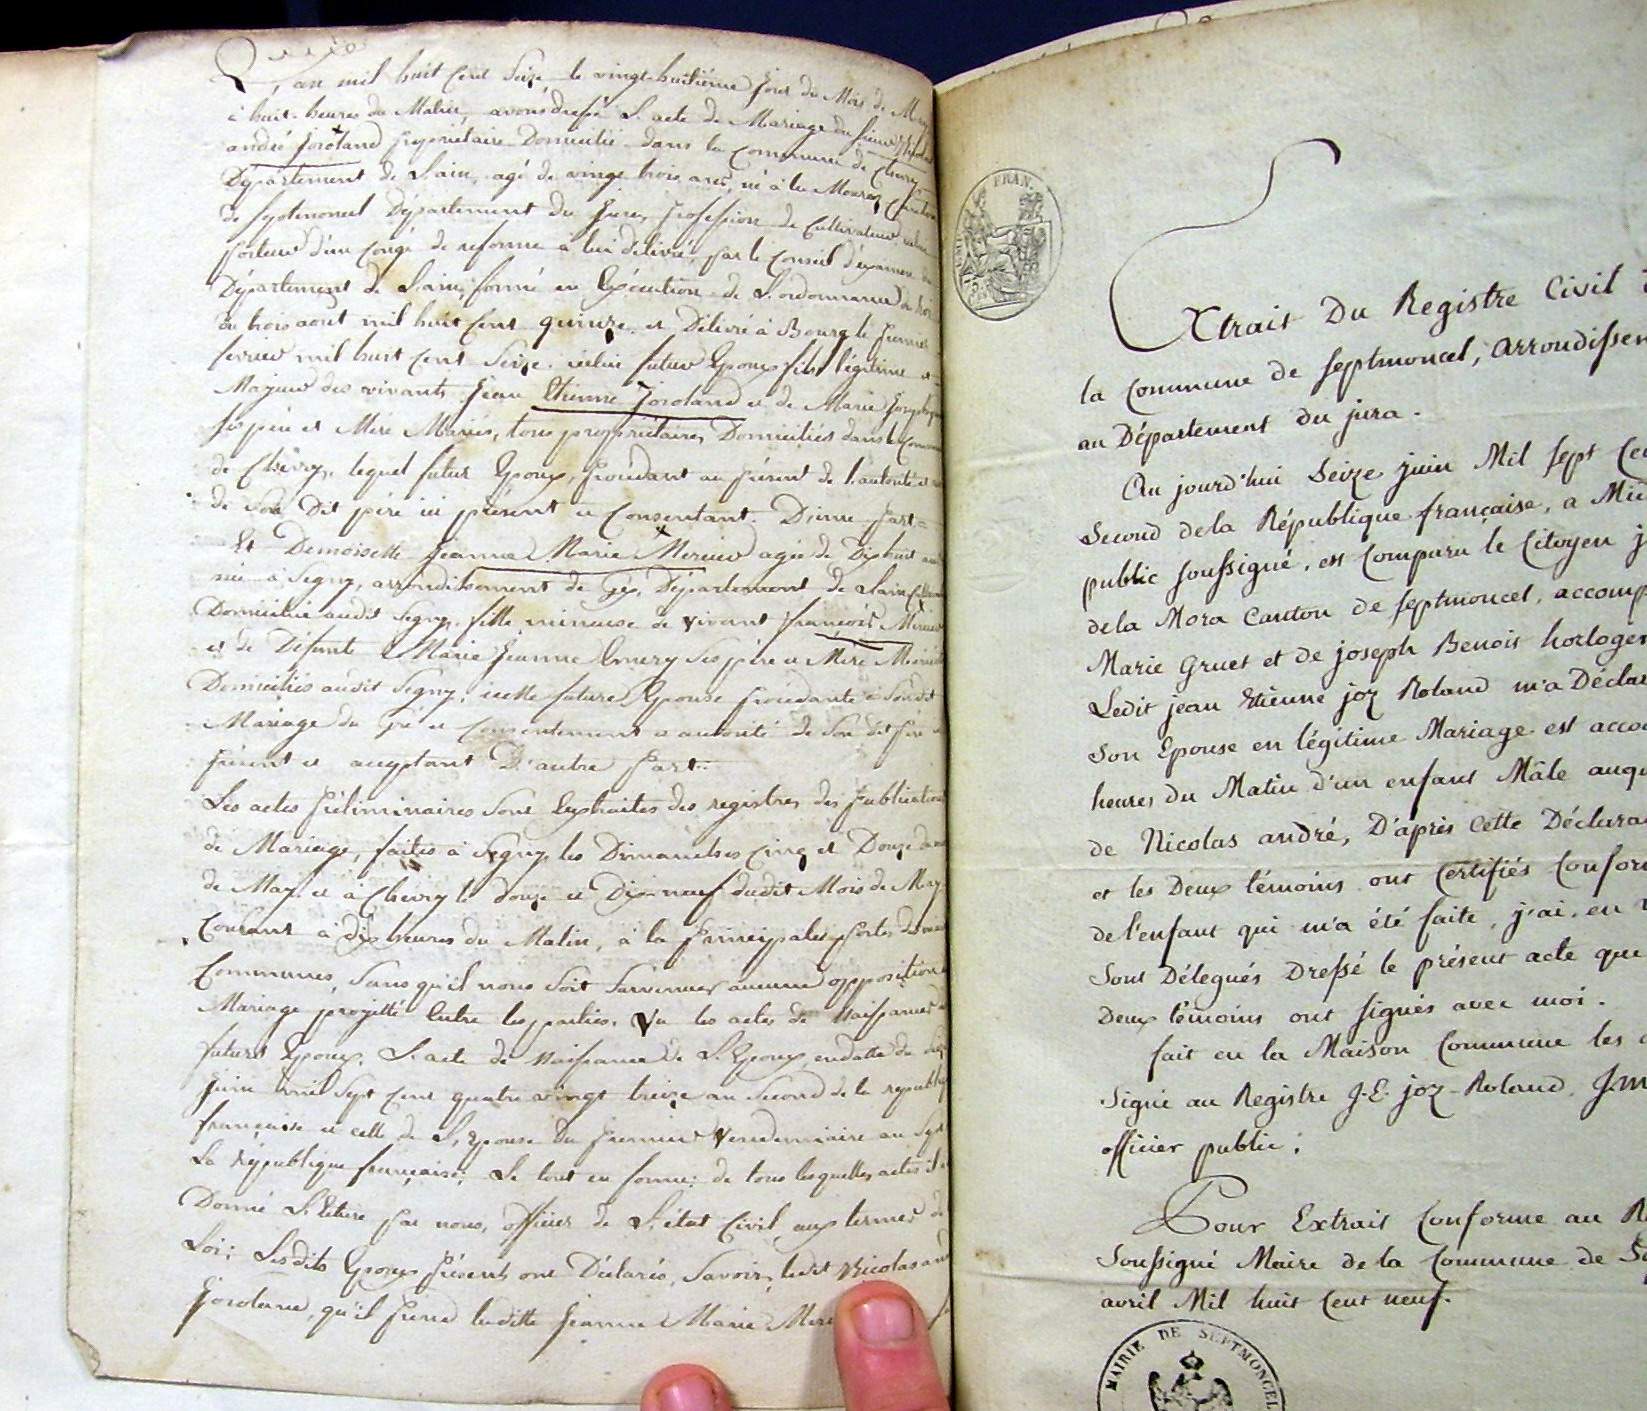 L'an mil huit Cent Seize le vingt-huitième Jour du Mois de May
à huit heures du Matin, avons dressé L'acte de Mariage du Sieur Nicolas
andré Joroland propriétaire Domicilié dans la Commune de Chevry
Département de Lain, agé de vingt trois ans, né à la Moura, Canton
de Septmoncel Département du Jura, profession de Cultivateur
porteur d'un Congé de reforme à lui délivré par le Conseil d'examen du
Département de Lain, formé en Exécution de L'ordonnance du Roi
du trois aout mil huit Cent quinze, et Délivré à Bourg le premier
fevrier mil huit cent Seize. icelui futur Epoux fils légitime et
Majeur des vivants Jean Etienne Joroland et de Marie
Ses père et Mère Mariés, tous propriétaires Domiciliés dans la Commune
de Chevry, lequel futur Epoux, procédant au présent de l'autorité et
de Son Dit père ici présent et Consentant. D'une part =
Et Demoiselle Jeanne Marie Mercier agée de Dix huit ans
née à Segny, arrondissement de Gex, Département de Lain
Domiciliée audit Segny, fille mineure de vivant françois Mercier
et de Défunte Marie Jeanne Emery Ses père et Mère Mariés
Domiciliés audit Segny, icelle future Epouse procédante à Sondit
Mariage du gré et Consentement et autorité de Son dit père
présent et acceptant D'autre part.
Les actes préliminaires Sont Extraites des registres des publications
de Mariage, faites à Segny les Dimanches Cinq et Douze du
de May et à Chevry le douze et Dix-neuf dudit Mois de May
Courant à dix heures du Matin, à la principale porte des
Communes, Sans qu'il nous Soit Survenues aucune opposition
Mariage projetté Entre les parties. Vu les actes de Naissances
futurs Epoux, L'acte de Naissance de L'Epoux endatte du Seize
Juin mil Sept Cent quatre vingt treize an Second de la republique
française et celle de L'Epouse du premier Vendemiaire an Sept
La République française; Le tout en forme: de tous lesquelles actes il a
Donné Lecture par nous, officier de L'état Civil aux termes de
Loi; Lesdits Epoux présents ont Déclarés, Savoir, ledit Nicolas andré
Joroland, qu'il prend laditte Jeanne Marie Mer
FRAN.
Extrait Du Registre Civil
la Commune de Septmoncel, arrondissem
au Département du jura.
Au jourd'hui Seize juin Mil Sept Ce
Second dela République française, a Mid
public soussigné, est Comparu le Citoyen j
dela Mora Canton de Septmoncel, accomp
Marie Gruet et de joseph Benoit horloger
Ledit jean Etienne joz Roland m'a Déclar
Son Epouse en légitime Mariage est acco
heures du Matin d'un enfant Mâle auqu
de Nicolas andré, D'après Cette Déclara
et les Deux témoins ont Certifiés Confor
de l'enfant qui m'a été faite, j'ai, en v
Sont Délegués Dressé le présent acte que
Deux témoins ont signés avec moi.
fait en la Maison Commune les
Signé au Registre J. E. joz-Roland,
officier public;
Pour Extrait Conforme au R
Soussigné Maire de la Commune de Se
avril Mil huit Cent neuf.
MAIRIE DE SEPTMONCEL